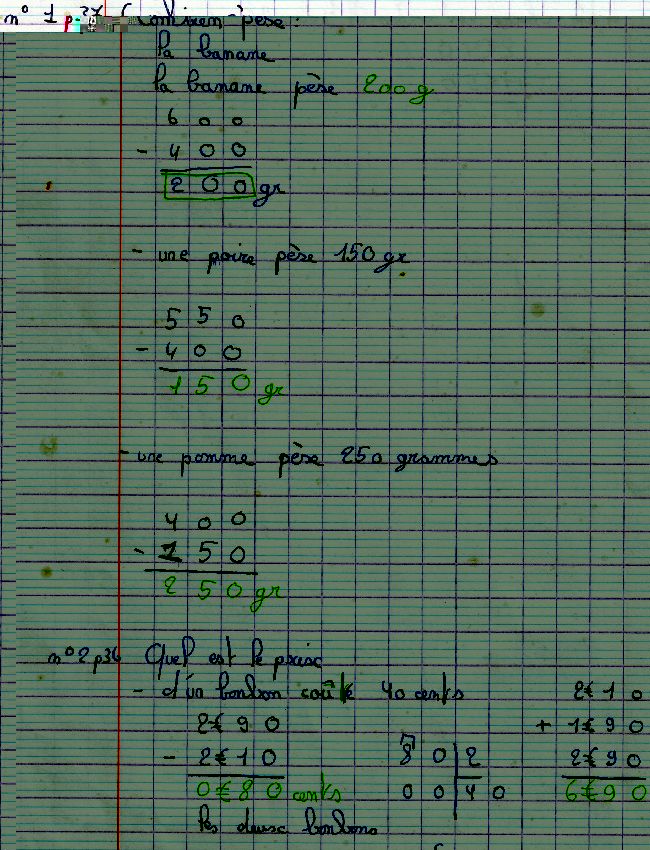 n° 1 p. 37 Combien pèse :
la banane
la banane pèse 200 g
6 0 0
- 4 0 0
2 0 0 gr
- une poire pèse 150 gr
5 5 0
- 4 0 0
1 5 0 gr
- une pomme pèse 250 grammes
4 0 0
- 1 5 0
2 5 0 gr
n° 2 p36 Quel est le prix
- d'un bonbon coûte 40 cents 2€ 1 0
2€ 9 0 + 1€ 9 0
- 2€ 1 0 8 0 2 2€ 9 0
0€ 8 0 cents 0 0 4 0 6€ 9 0
les deux bonbons